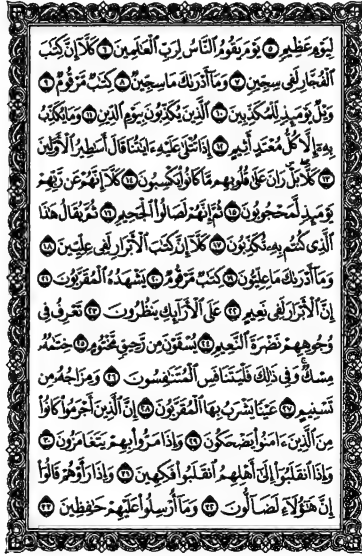 لِيَوْمٍ عَظِيمٍ ٥ يَوْمَ يَقُومُ النَّاسُ لِرَبِّ الْعَالَمِينَ ٦ كَلَّا إِنَّ كِتَابَ
الْفُجَّارِ لَفِي سِجِّينٍ ٧ وَمَا أَدْرَاكَ مَا سِجِّينٌ ٨ كِتَابٌ مَرْقُومٌ ٩
وَيْلٌ يَوْمَئِذٍ لِلْمُكَذِّبِينَ ١٠ الَّذِينَ يُكَذِّبُونَ بِيَوْمِ الدِّينِ ١١ وَمَا يُكَذِّبُ
بِهِ إِلَّا كُلُّ مُعْتَدٍ أَثِيمٍ ١٢ إِذَا تُتْلَى عَلَيْهِ آيَاتُنَا قَالَ أَسَاطِيرُ الْأَوَّلِينَ
١٣ كَلَّا بَلْ رَانَ عَلَى قُلُوبِهِمْ مَا كَانُوا يَكْسِبُونَ ١٤ كَلَّا إِنَّهُمْ عَنْ رَبِّهِمْ
يَوْمَئِذٍ لَمَحْجُوبُونَ ١٥ ثُمَّ إِنَّهُمْ لَصَالُوا الْجَحِيمِ ١٦ ثُمَّ يُقَالُ هَذَا
الَّذِي كُنْتُمْ بِهِ تُكَذِّبُونَ ١٧ كَلَّا إِنَّ كِتَابَ الْأَبْرَارِ لَفِي عِلِّيِّينَ ١٨
وَمَا أَدْرَاكَ مَا عِلِّيُّونَ ١٩ كِتَابٌ مَرْقُومٌ ٢٠ يَشْهَدُهُ الْمُقَرَّبُونَ ٢١
إِنَّ الْأَبْرَارَ لَفِي نَعِيمٍ ٢٢ عَلَى الْأَرَائِكِ يَنْظُرُونَ ٢٣ تَعْرِفُ فِي
وُجُوهِهِمْ نَضْرَةَ النَّعِيمِ ٢٤ يُسْقَوْنَ مِنْ رَحِيقٍ مَخْتُومٍ ٢٥ خِتَامُهُ
مِسْكٌ وَفِي ذَلِكَ فَلْيَتَنَافَسِ الْمُتَنَافِسُونَ ٢٦ وَمِزَاجُهُ مِنْ
تَسْنِيمٍ ٢٧ عَيْنًا يَشْرَبُ بِهَا الْمُقَرَّبُونَ ٢٨ إِنَّ الَّذِينَ أَجْرَمُوا كَانُوا
مِنَ الَّذِينَ ءَامَنُوا يَضْحَكُونَ ٢٩ وَإِذَا مَرُّوا بِهِمْ يَتَغَامَزُونَ ٣٠
وَإِذَا انْقَلَبُوا إِلَى أَهْلِهِمُ انْقَلَبُوا فَكِهِينَ ٣١ وَإِذَا رَأَوْهُمْ قَالُوا
إِنَّ هَؤُلَاءِ لَضَالُّونَ ٣٢ وَمَا أُرْسِلُوا عَلَيْهِمْ حَافِظِينَ ٣٣